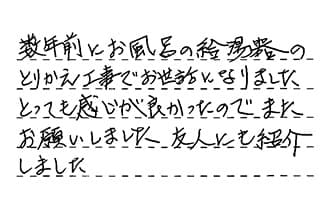 数年前にお風呂の給湯器の
とりかえ工事でお世話になりました
とっても感じが良かったのでまた
お願いしました 友人にも紹介
しました